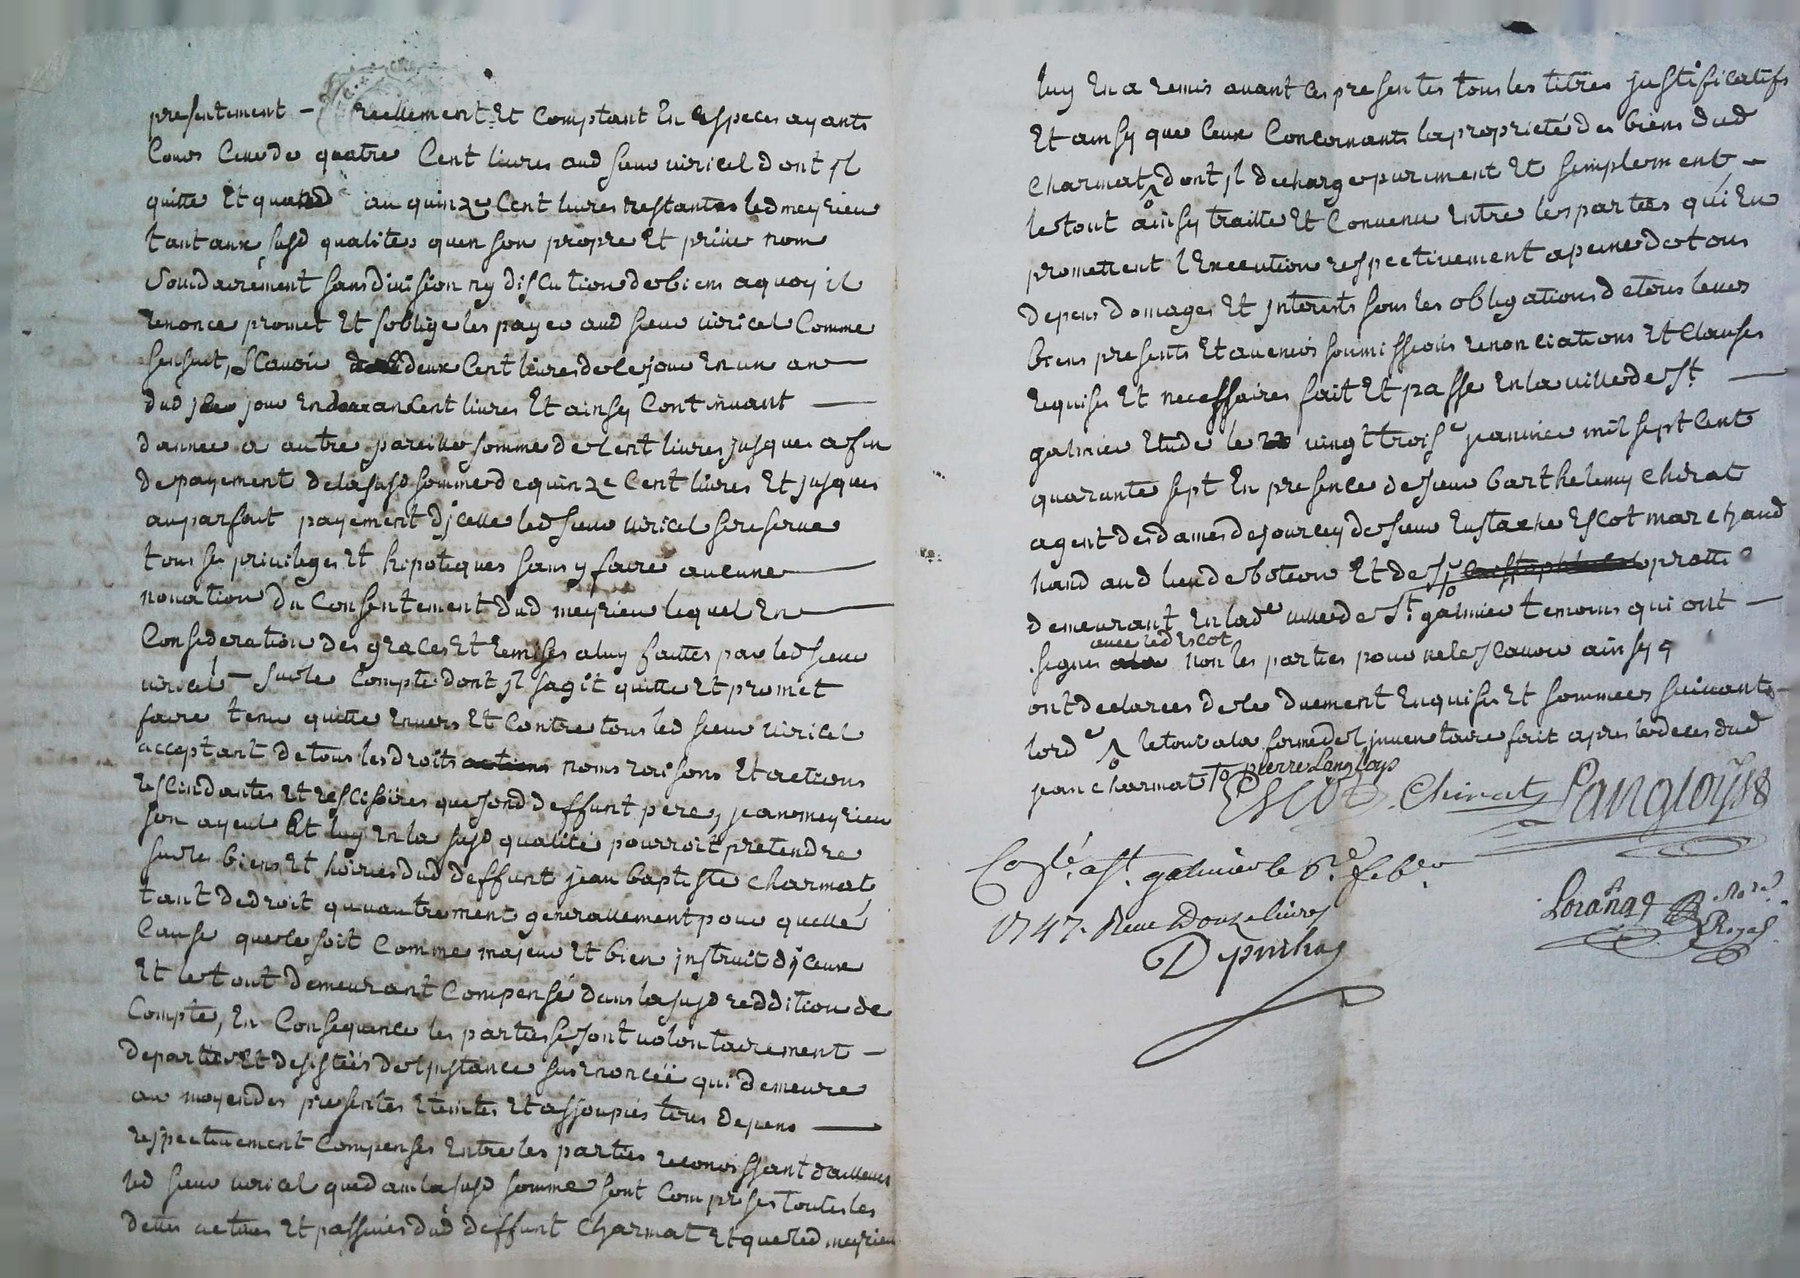 presentement – reellement Et Comptant En Especes ayants
Cours Celle de quatre Cent livres aud sieur viricel dont jl
quitte Et quand au quinze Cent livres restantes led meyrieu
tant aux susd qualites quen son propre Et privé nom
Solidairement sans division ny discution de biens a quoy il
renonce promet Et soblige les payer aud sieur viricel Comme
sensuit, Scavoir deux Cent livres de ce jour En un an
dud jour En un an Cent livres Et ainsy Continuant
dannee a autre pareille somme de Cent livres jusques a fin
de payement de la susd somme de quinze Cent livres Et jusques
au parfait payement djcelle led sieur viricel se reserve
tous ses privileges Et hipoteques sans y faire aucune
novation du Consentement dud meyrieu lequel En
Consideration des graces Et remises a luy faittes par led sieur
viricel Sur le Compte dont jl sagit quitte Et promet
faire tenir quitte Envers Et Contre tous led sieur viricel
acceptant de tous les droits actions noms raisons Et actions
rescindantes Et rescisoires que son d deffunt pere, jean meyrieu
son ayeul Et luy En la susd qualité pourroit pretendre
sur les biens Et hoiries dud deffunt jean baptiste Charmat
tant de droit quautrement generallement pour quelle
Cause que ce soit Comme majeur Et bien jnstruit djceux
Et le tout demeurant Compensé dans la susd reddition de
Compte, En Consequence les parties se sont volontairement –
departies Et desistées de l'jnstance susEnoncée qui demeure
au moyen des presentes Eteintes Et assoupies tous depens
respectivement Compensés Entre les parties reconoissant dailleurs
led sieur viricel que dans la susd somme sont Comprises toutes les
dettes actives Et passives dud deffunt Charmat Et que led meyrieu
luy En a remis avant ces presentes tous les titres justificatifs
Et ainsy que Ceux Concernants la proprieté des biens dud
Charmat, dont jl decharge purement Et simplement –
le tout ainsy traitte Et Convenu Entre les parties qui En
promettent l'Execution respectivement a peine de tous
depens domages Et jnterests sous les obligations de tous leurs
biens presents Et avenirs soumissions renonciations Et Clauses
requises Et necessaires fait Et passé En la ville de St
galmier Etude le vingt trois e janvier mil sept Cent
quarante sept En presence de sieur barthelemy Chirat
agent des dames de jourcey de sieur Eustache Escot marchand
hand aud lieu de boteon Et de Sr pratt
demeurant En lad e ville de St galmier temoins qui ont –
signés avec led Escot non les parties pour ne le scavoir ainsy q
ont declarées de ce duement Enquises Et sommées suivant
lord e le tout a la forme de l'jnventaire fait apres le deces dud
jean charmat pierre Langloys
Escot Chirat Langloÿs
Co le a St galmier le 6e feb er
1747. Reçu Douze livres
Lorañge Nore
Royal
Depinhac